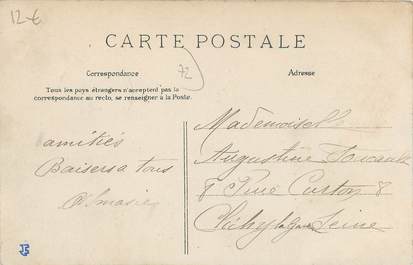 12-€
CARTE POSTALE
Correspondance
72
Adresse
Tous les pays étrangers n'acceptent pas la
correspondance au recto, se renseigner à la Poste.
amitiés
Baisers a tous
Mademoiselle
Augustine
8 Rue 8
Clichy la Gar Seine